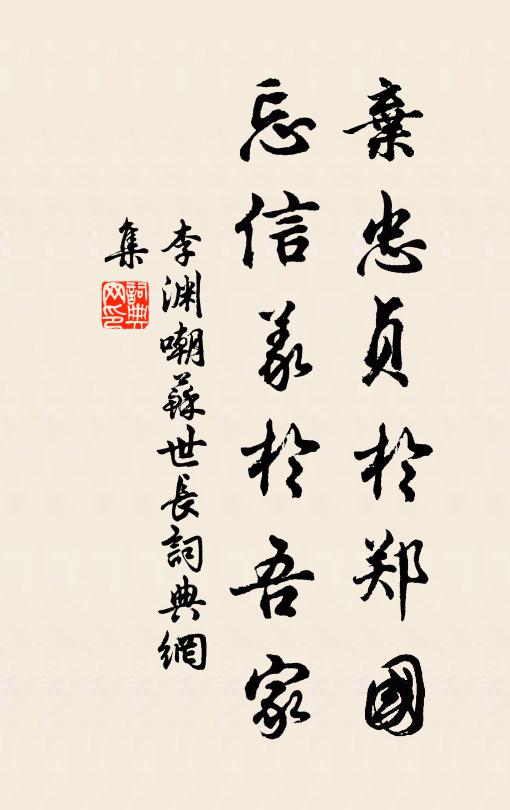 棄忠貞於郑國
忘信義於吾家
李淵嘲蘇世長詞典網
集
詞典
网印